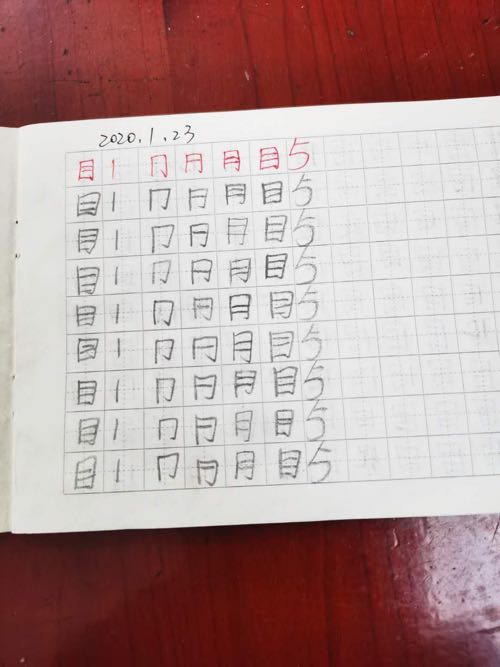 2020.1.23
目 丨 冂 月 目 5
目 丨 冂 月 目 5
目 丨 冂 月 目 5
目 丨 冂 月 目 5
目 丨 冂 月 目 5
目 丨 冂 月 目 5
目 丨 冂 月 目 5
目 丨 冂 月 目 5
目 丨 冂 月 目 5